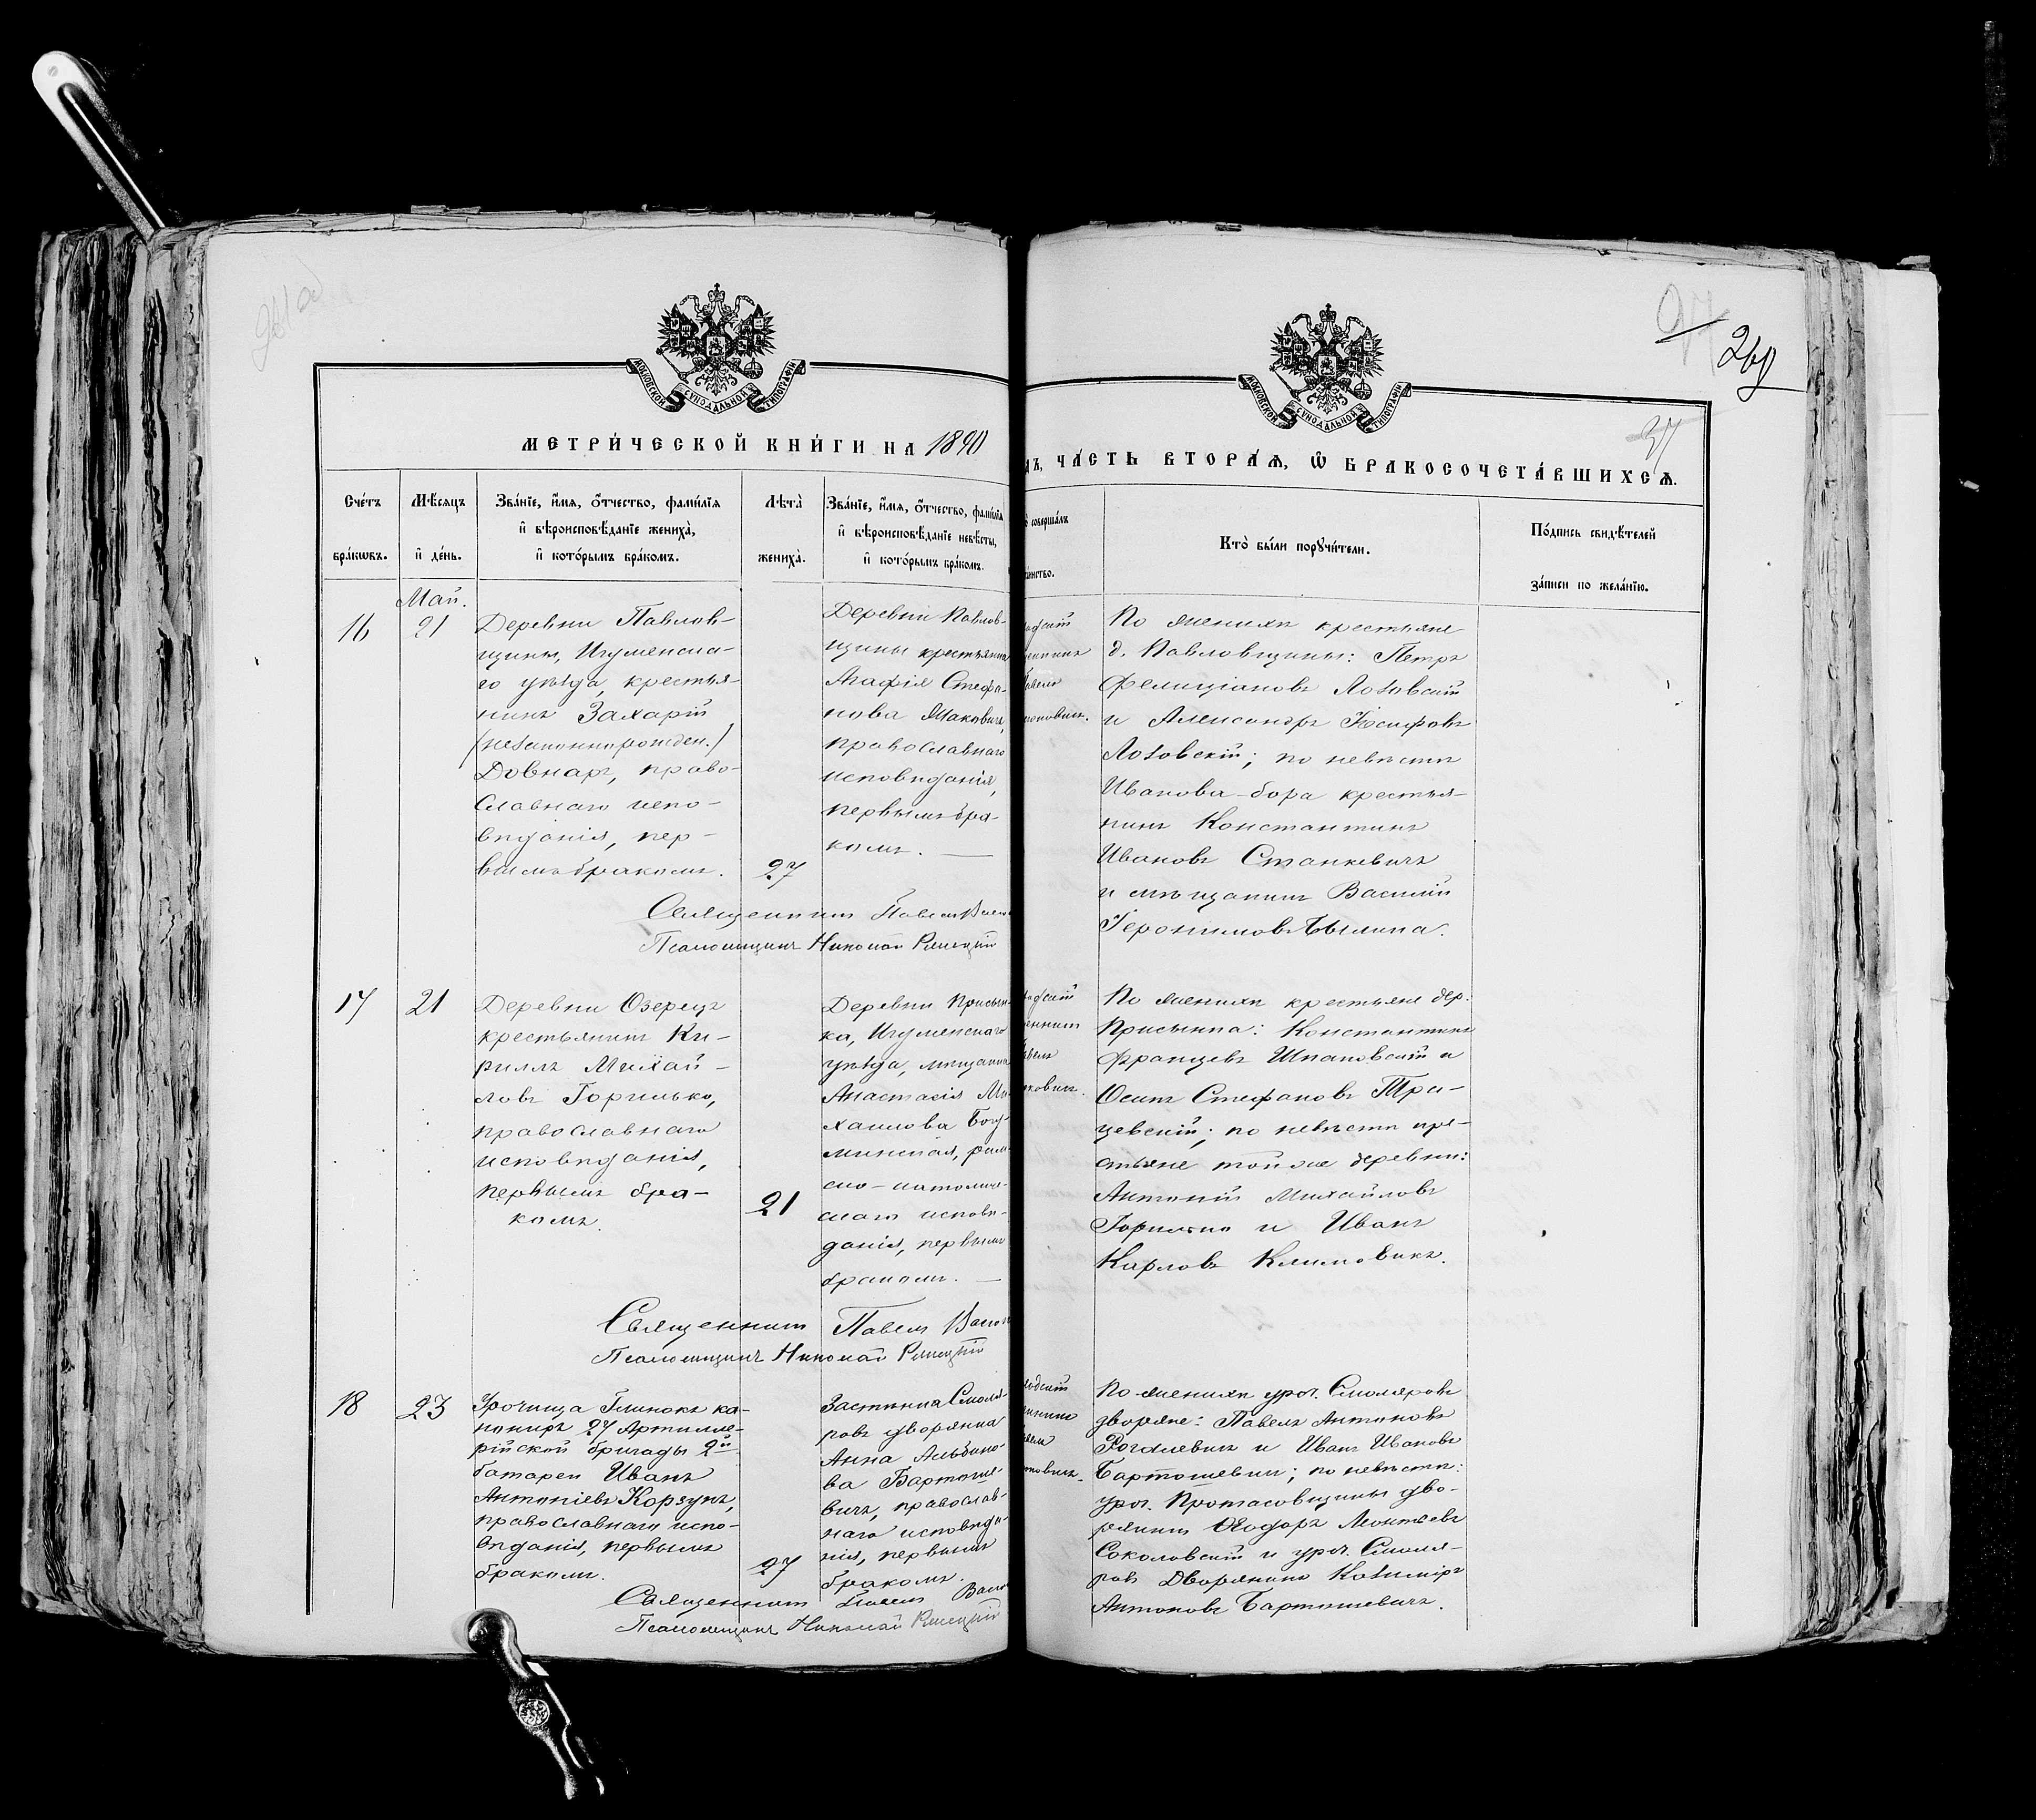 260
37
МОСКОВСКОЙ СѴНОДАЛЬНОЙ ТИПОГРАФІИ
МОСКОВСКОЙ СѴНОДАЛЬНОЙ ТИПОГРАФІИ
МЕТРИ́ЧЕСКОЙ КНИ́ГИ НА 1890
ЧА́СТЬ ВТОРА́Ѧ, Ѽ БРАКОСОЧЕТА́ВШИХСѦ.
Сче́тъ
бра́кѡвъ.
Мѣ́сѧцъ
и҆ де́нь.
Зва́нїе, и҆́мѧ, ѻ҆́тчество, фами́лїѧ
и҆ вѣроисповѣ́данїе жениха̀,
и҆ кото́рымъ бра́комъ.
Лѣ́та
жениха̀.
Зва́нїе, и҆́мѧ, ѻ҆́тчество, фами́лїѧ
и҆ вѣроисповѣ́данїе невѣ́сты,
и҆ кото́рымъ бра́комъ.
совершáлъ
Кто̀ бы́ли порꙋчи́тели.
По́дпись свидѣ́телей
за́писи по жела́нїю.
Май.
16
21
Деревни Павлов-
щины, Игуменска-
го уѣзда, крестья-
нинъ Захарій
(незаконнорожден.)
Довнаръ, право-
славнаго испо-
вѣданія, пер-
вымъ бракомъ.
27
Деревни Павлов-
щины крестьянка
Агафія Стефа-
нова Макович,
православнаго
исповѣданія,
первымъ бра-
комъ. —
По женихѣ крестьяне
д. Павловщины: Петръ
Фелиціановъ Лозовскій
и Александръ Іосифовъ
Лозовскій; по невѣстѣ
Иванова-бора крестья-
нинъ Константинъ
Ивановъ Станкевичъ
и мѣщанинъ Василій
Іеронимовъ
Священникъ Павелъ
Псаломщикъ Николай
17
21
Деревни Озерецъ
крестьянинъ Ки-
риллъ Михай-
ловъ Горчилько,
православнаго
исповѣданія,
первымъ бра-
комъ.
21
Деревни Присын-
ка, Игуменскаго
уѣзда, мѣщанка
Анастасія Ми-
хаилова
рим-
ско-католиче-
скаго исповѣ-
данія, первымъ
бракомъ. —
По женихѣ крестьяне дер.
Присынка: Константинъ
Францевъ Шпаковскій и
Осипъ Стефановъ Тра-
цевскій; по невѣстѣ кре-
стьяне той же деревни:
Антоній Михайловъ
и Иванъ
Карловъ Климовичъ.
Священникъ Павелъ
Псаломщикъ Николай
18
23
Урочища Глинокъ ка-
ниръ 27 Артилле-
рійской бригады 2й
батареи Иванъ
Антоніевъ Корзунъ,
православнаго испо-
вѣданія, первымъ
бракомъ.
27
Застѣнка Смоля-
ровъ дворянка
Анна Альбино-
ва Бартоше-
вичъ, православ-
наго исповѣда-
нія, первымъ
бракомъ.
По женихѣ уроч. Смоляровъ
дворяне: Павелъ Антоновъ
Рогалевичъ и Иванъ Ивановъ
Бартошевичъ; по невѣстѣ:
уроч. Протасовщины дво-
рянинъ Ѳеодоръ Леонтьевъ
Соколовскій и уроч. Смоля-
ровъ дворянинъ Казиміръ
Антоновъ Бартошевичъ.
Священникъ Павелъ
Псаломщикъ Николай